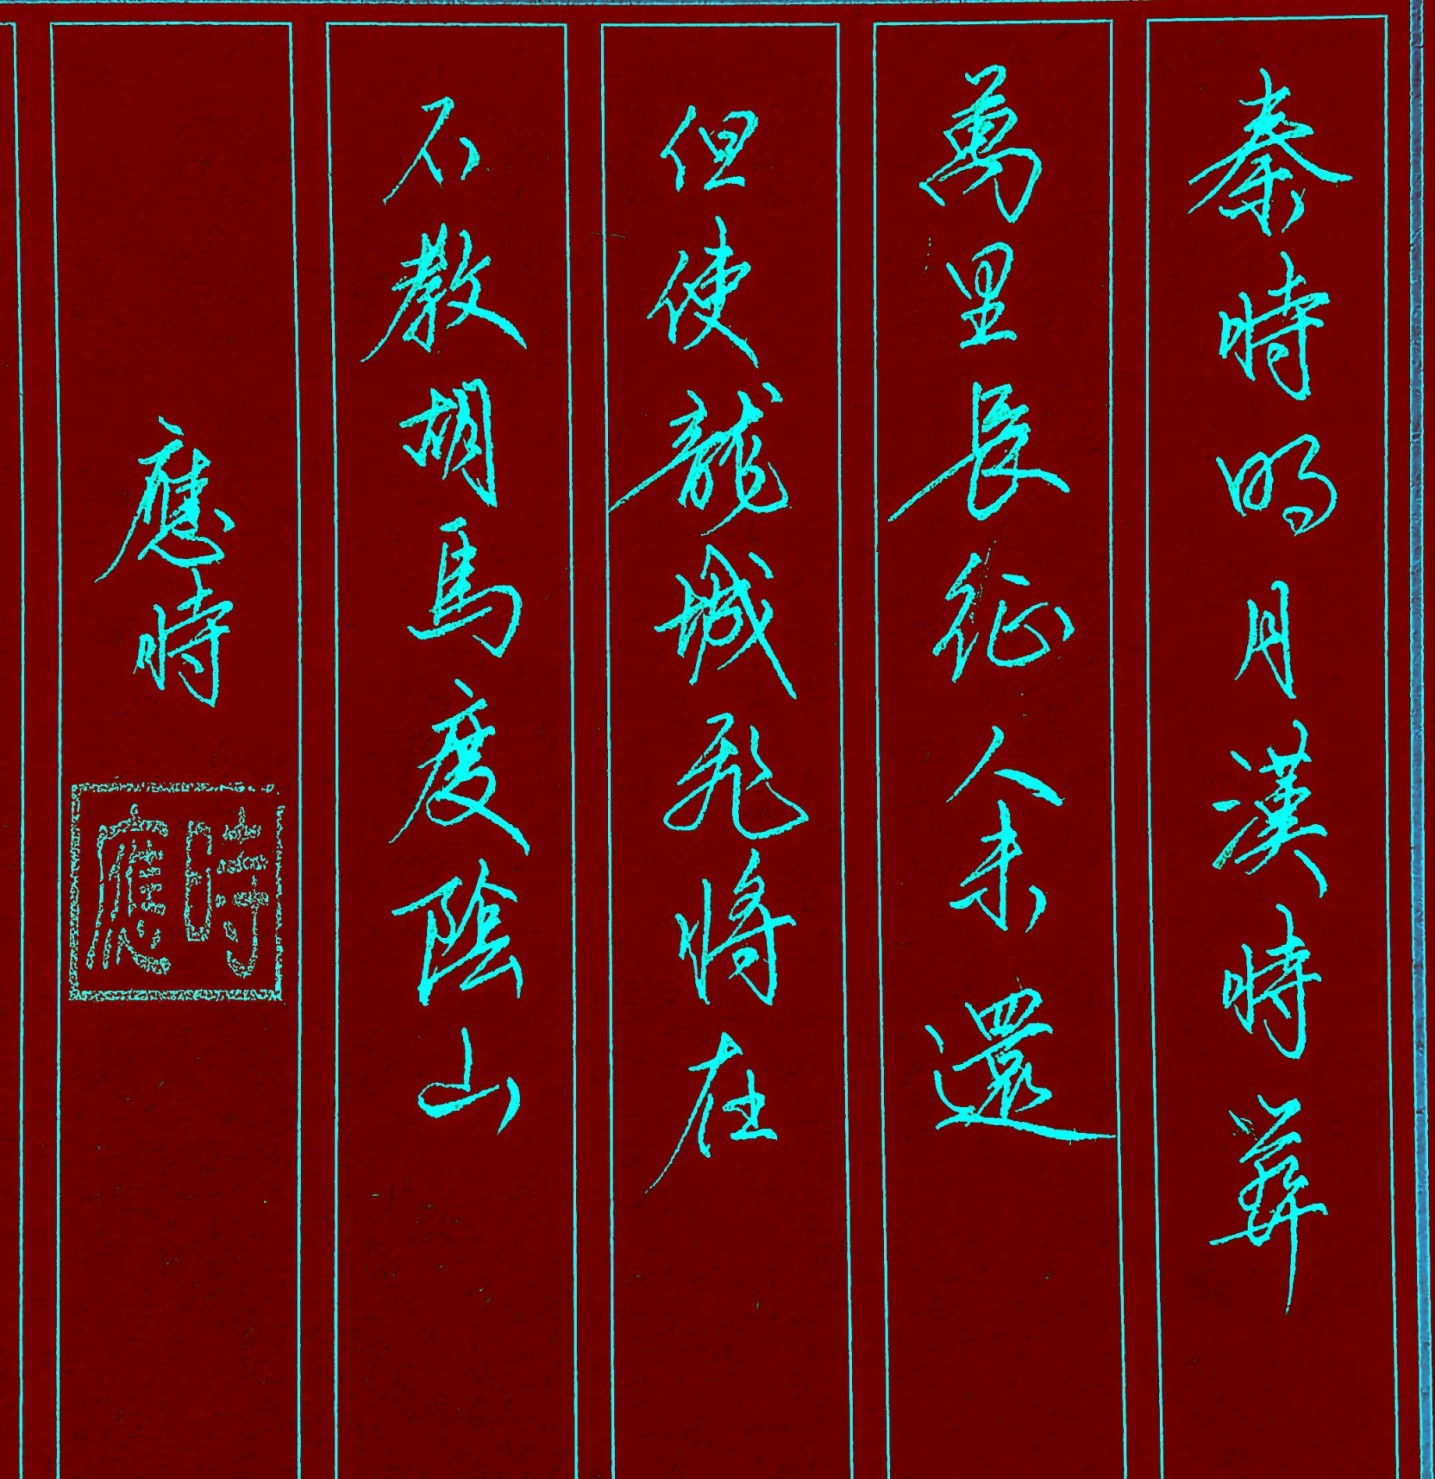 秦時明月漢時關
萬里長征人未還
但使龍城飛將在
不教胡馬度陰山
應時
應時